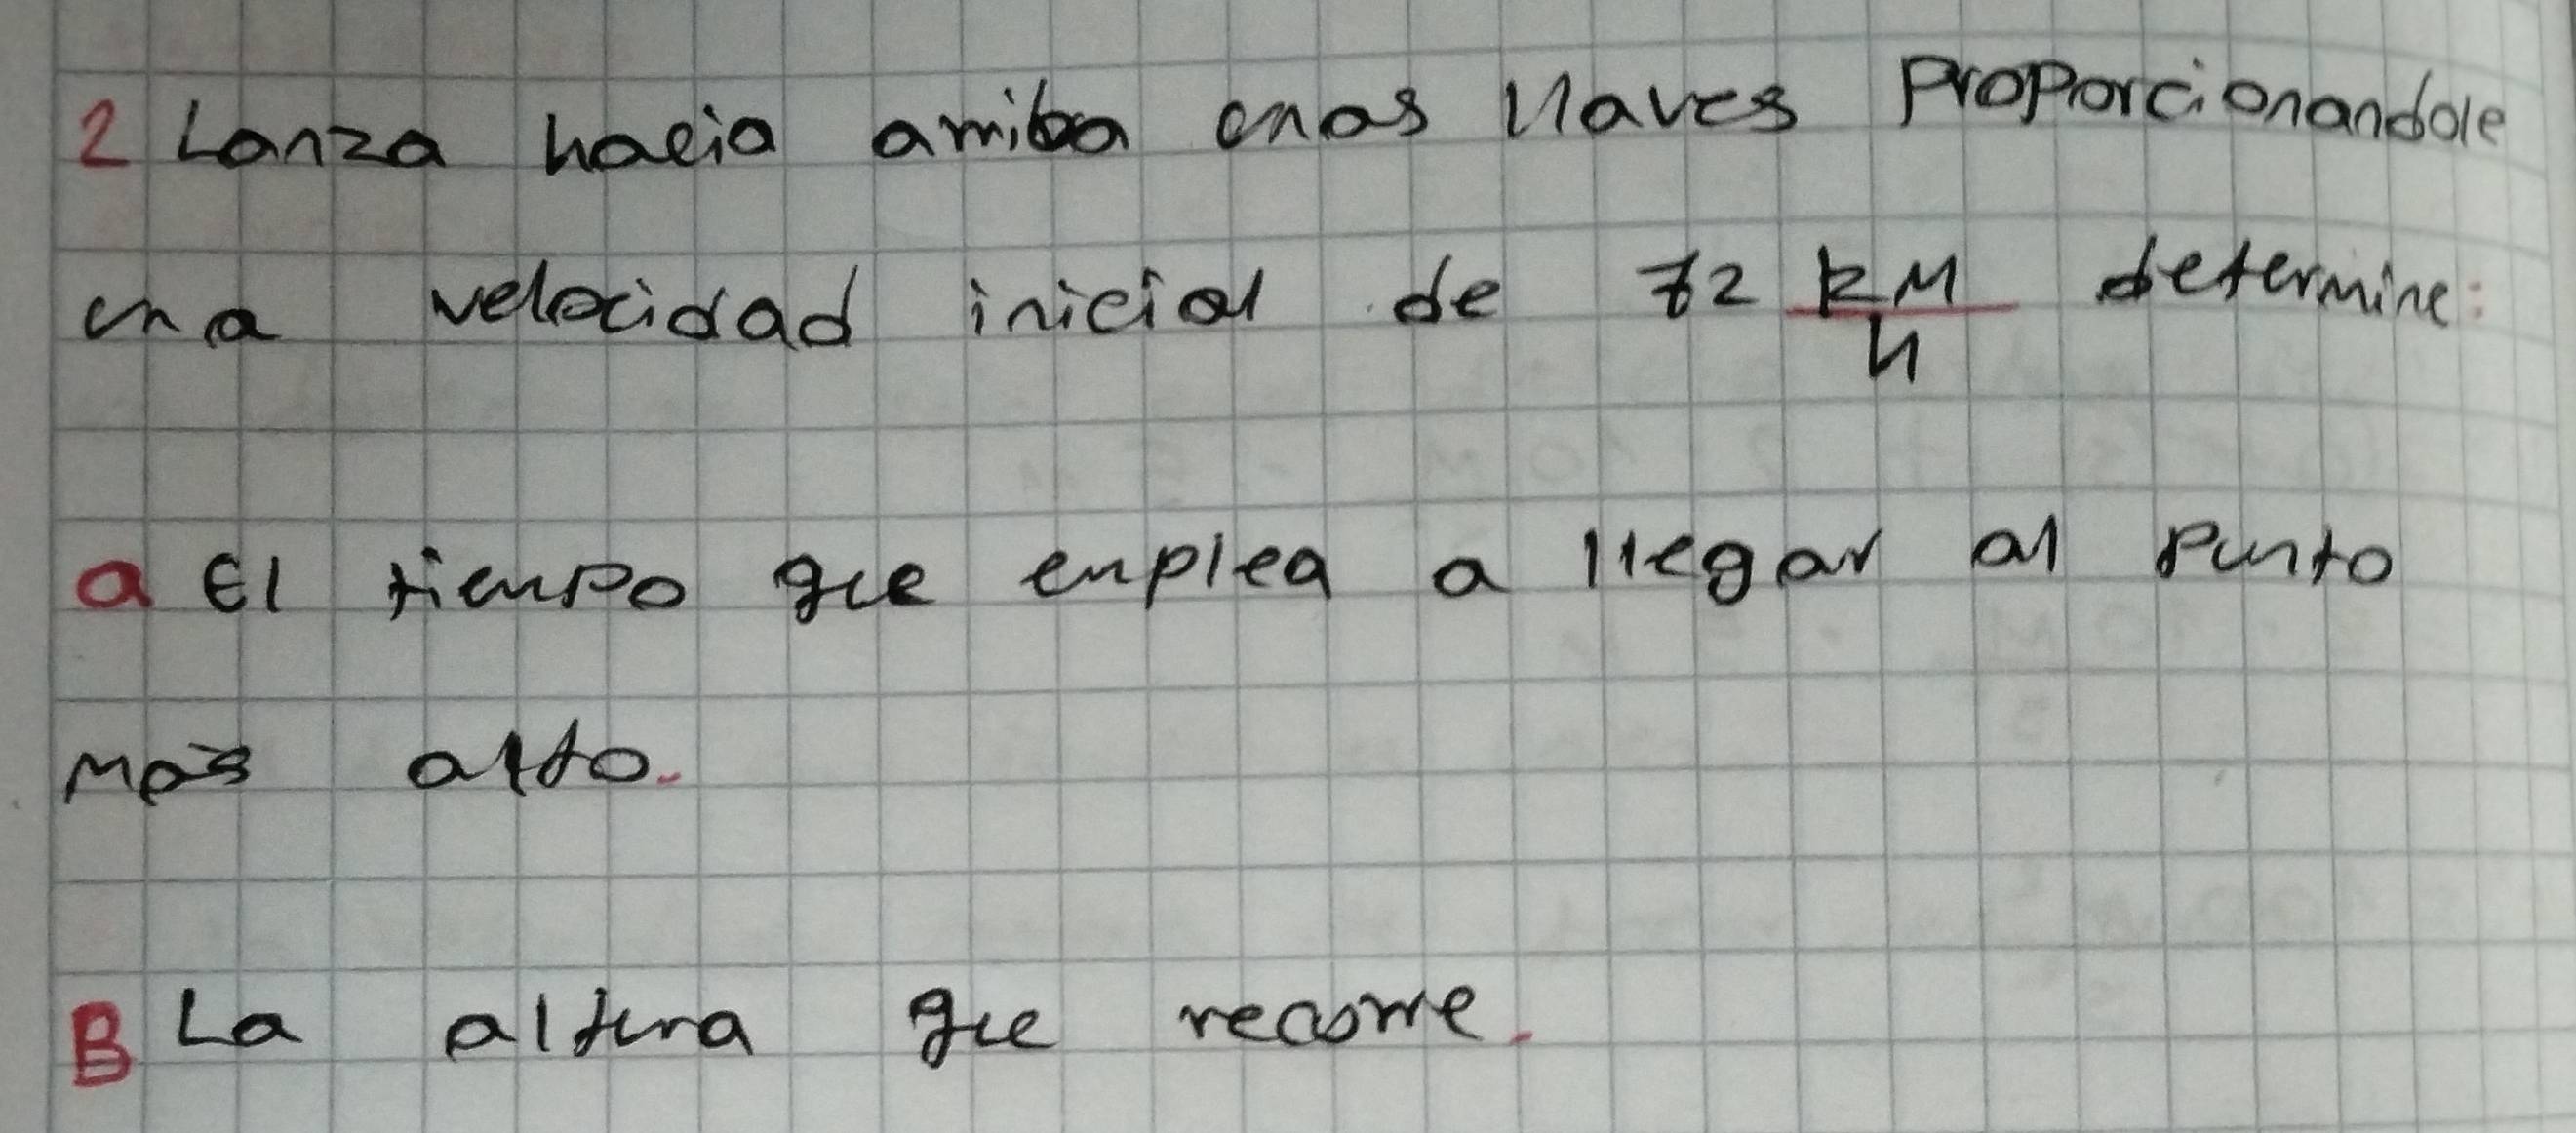 2 Lanza hacia arriba unas llaves proporcionandole
una velocidad inicial de 72 km/h determine:
a El tiempo que enplea a llegar al punto
mas alto.
B La altura que recorre.